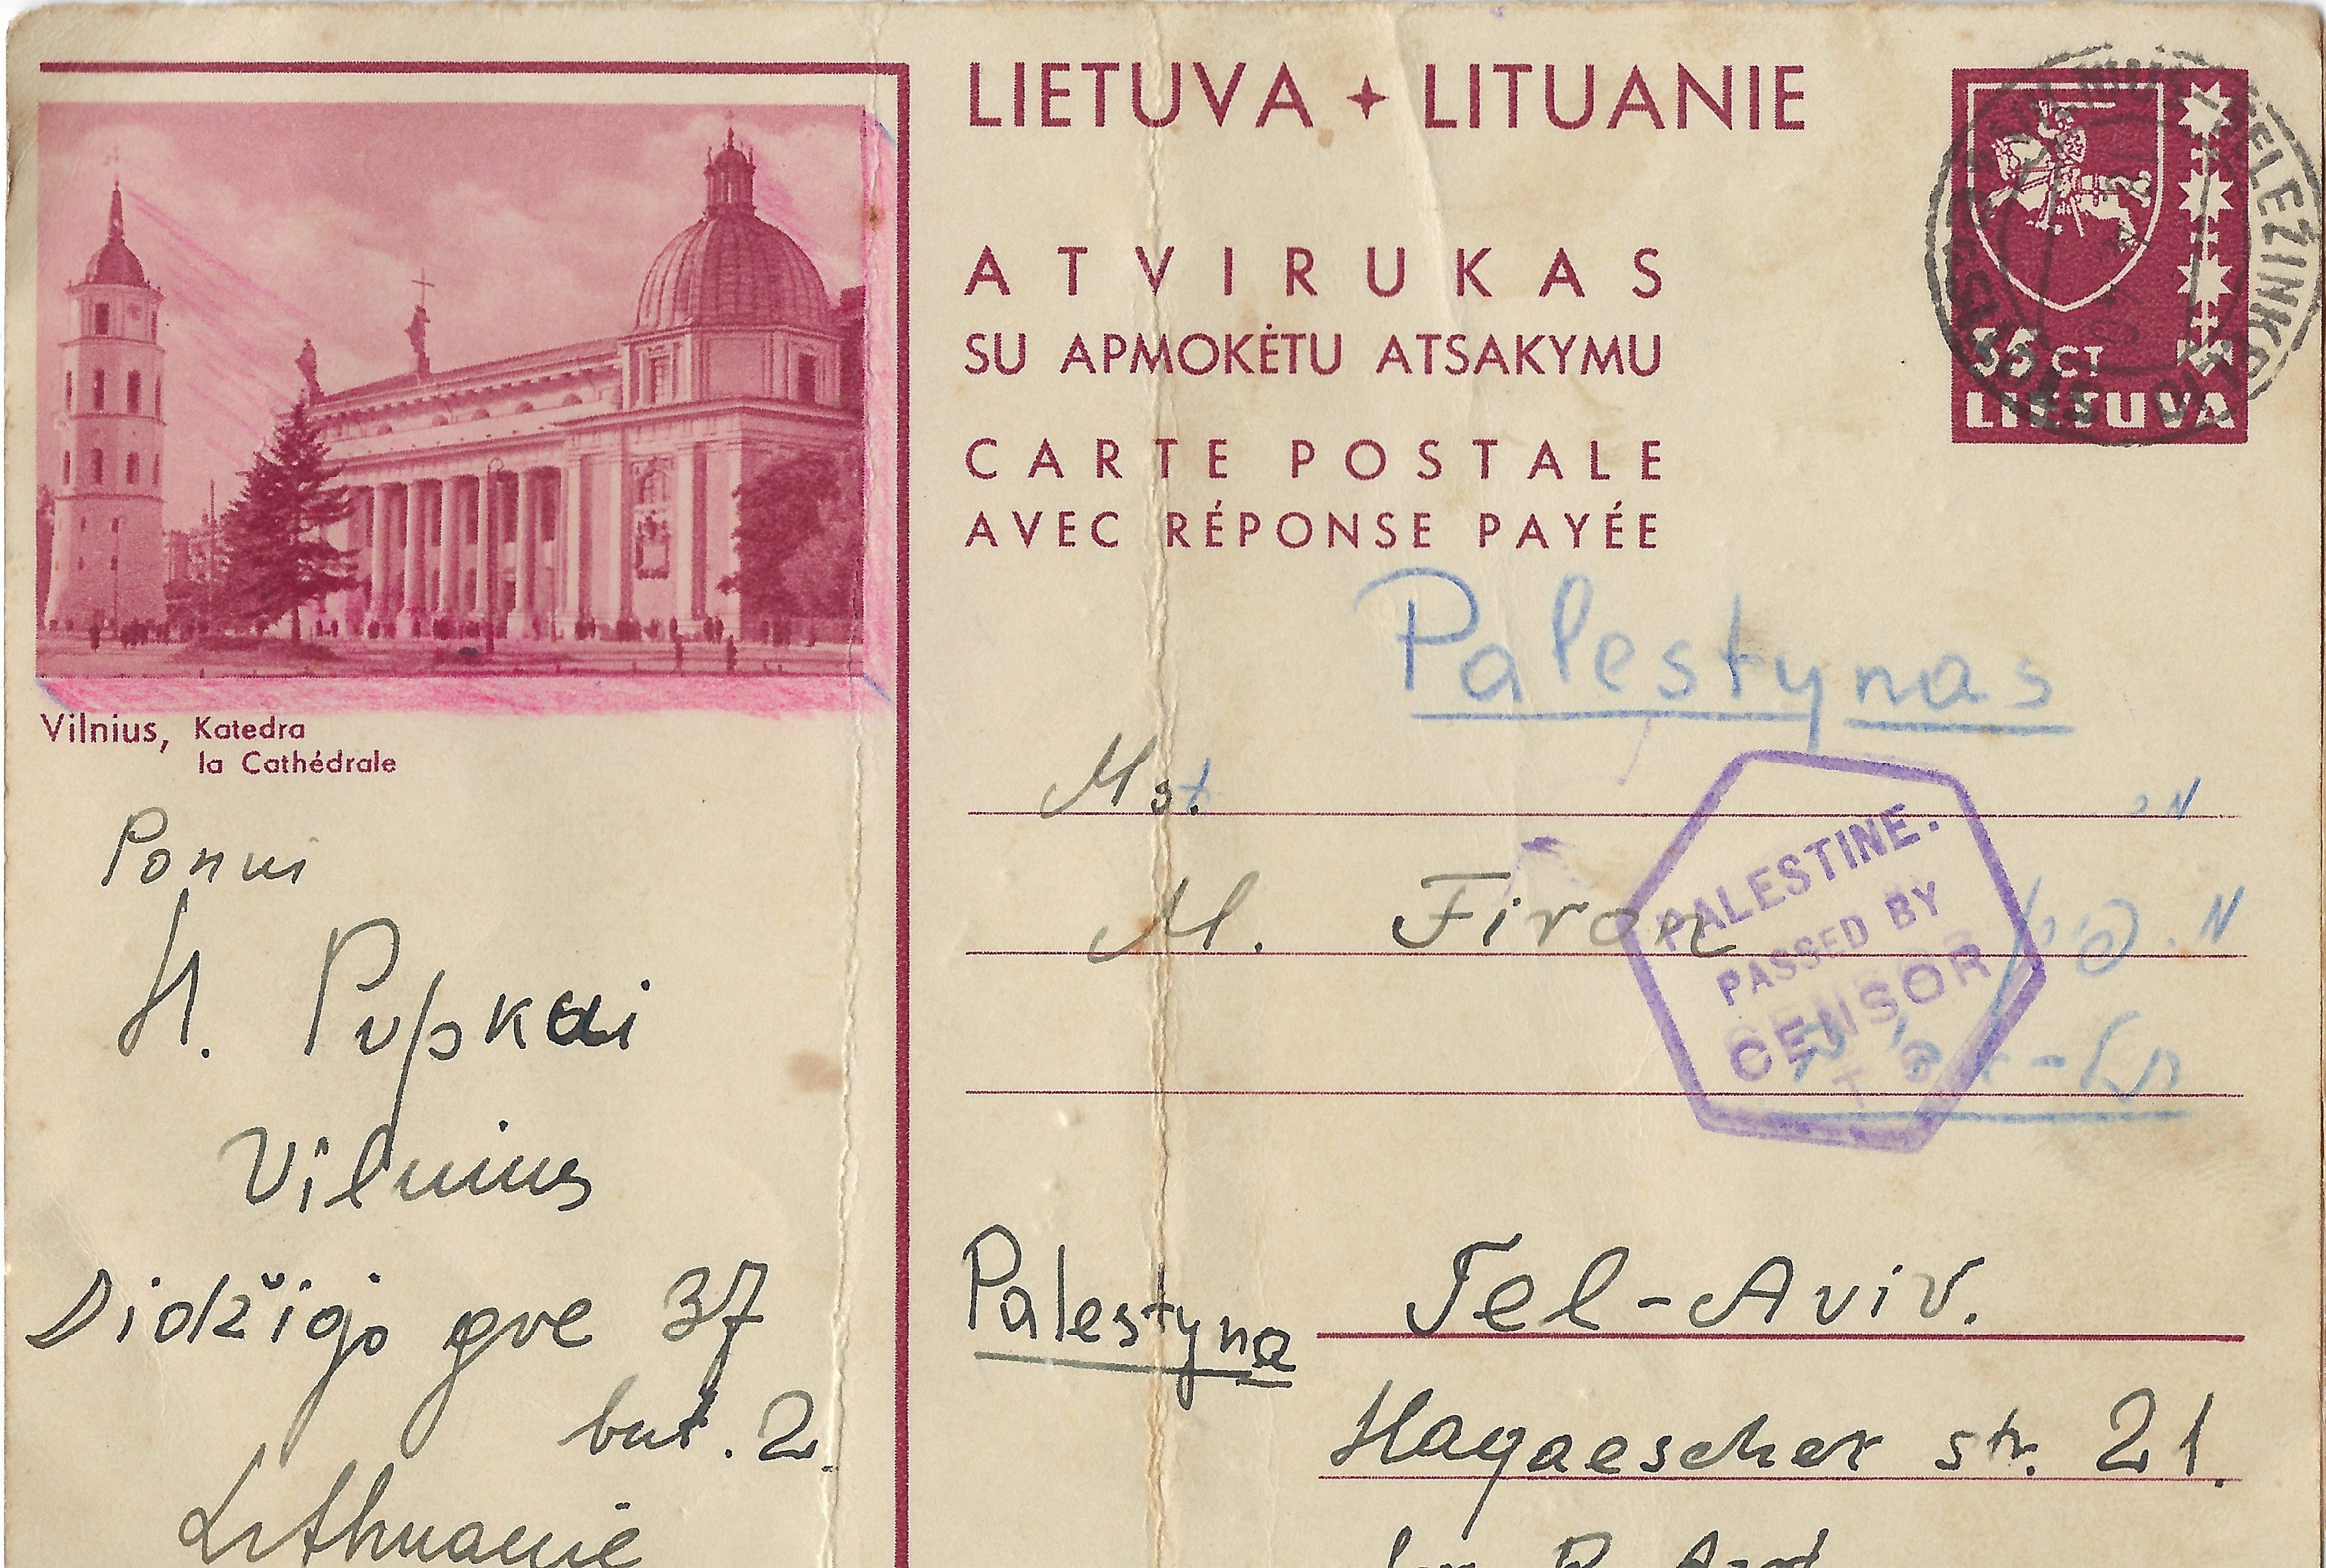 LIETUVA + LITUANIE
ATVIRUKAS
SU APMOKĖTU ATSAKYMU
CARTE POSTALE
AVEC RÉPONSE PAYÉE
35 CT
LIETUVA
GELEŽINK.
STOTIS
Vilnius, Katedra
la Cathédrale
Ponui
Pupkai
Vilnius
Didžiojo gve 37
but. 2.
Lithuanie
Palestynas
M. Firon
PALESTINE.
PASSED BY
CENSOR
T
Palestyna
Tel-Aviv.
Hagaescher str. 21.